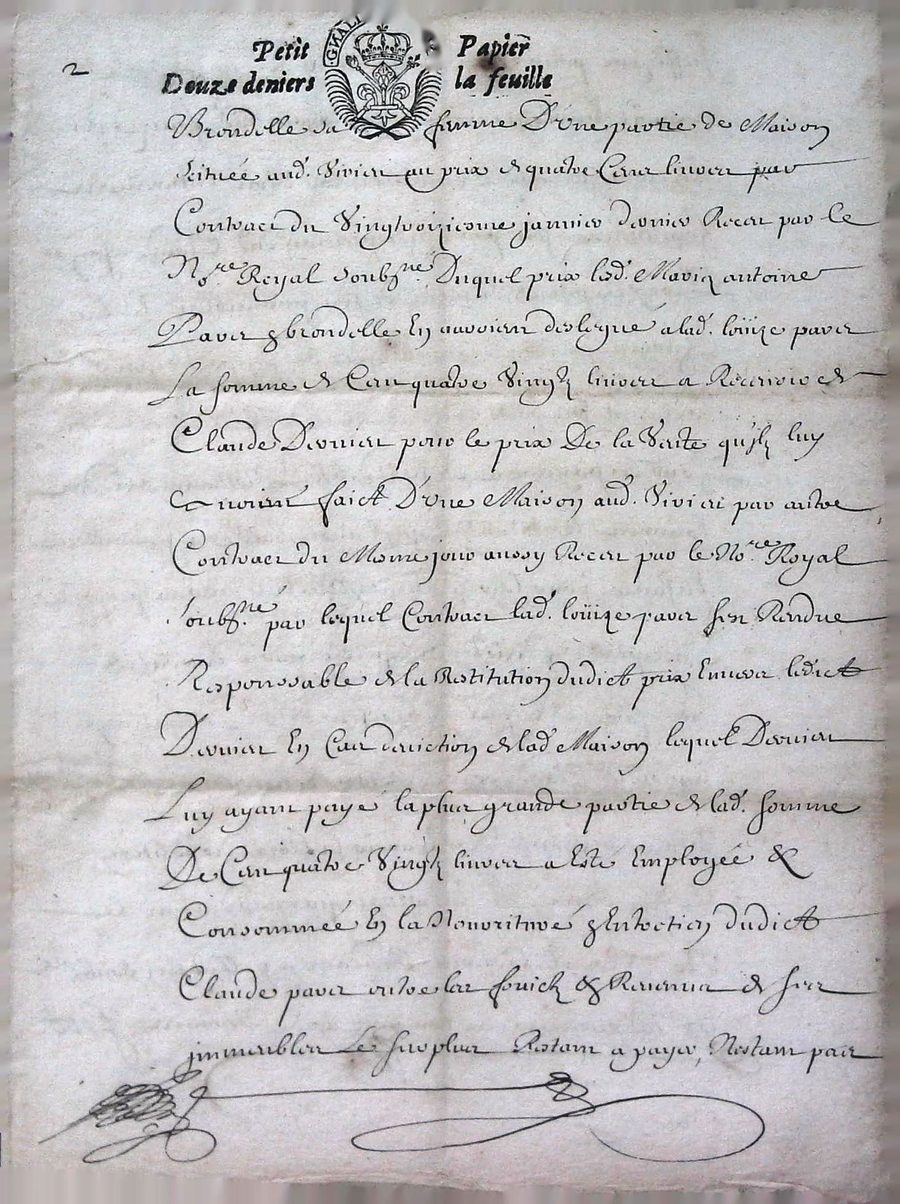 2
Petit Papier
Douze deniers la feuille
GNALI
Brondelle sa femme D'une partie de Maison
scituée aud. Vivier au prix de quatre Cens livres par
Contract du Vingttroizieme janvier dernier Receu par le
No.re Royal soubs.né Duquel prix lesd. Mariez antoine
Paver & brondelle En auroient delegué a lad. loüize paver
La somme de Cen quatre Vingtz livres a Recevoir de
Claude Dernier pour le prix De la Vente qu'ilz luy
auroient faict D'une Maison aud. Vivier par autre
Contract du Mesme jour aussy Receu par le No.re Royal
soubs.né par lequel Contract lad. loüize paver s'est Rendue
Responssable de la Restitution dudict prix Envers ledict
Dernier En Cas deviction de lad. Maison lequel Dernier
Luy ayant payé la plus grande partie de lad. somme
De Cen quatre Vingtz livres a Esté Employée &
Consommée En la Nouriture & Entretien dudict
Claude paver outre les fruictz & Revenus de ses
jmmeubles Le surplus Restant a payer, Nestant pas